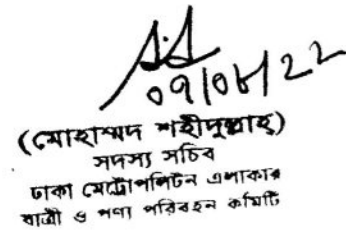 09/06/22
(মোহাম্মদ শহীদুল্লাহ)
সদস্য সচিব
ঢাকা মেট্রোপলিটন এলাকার
যাত্রী ও পণ্য পরিবহন কমিটি